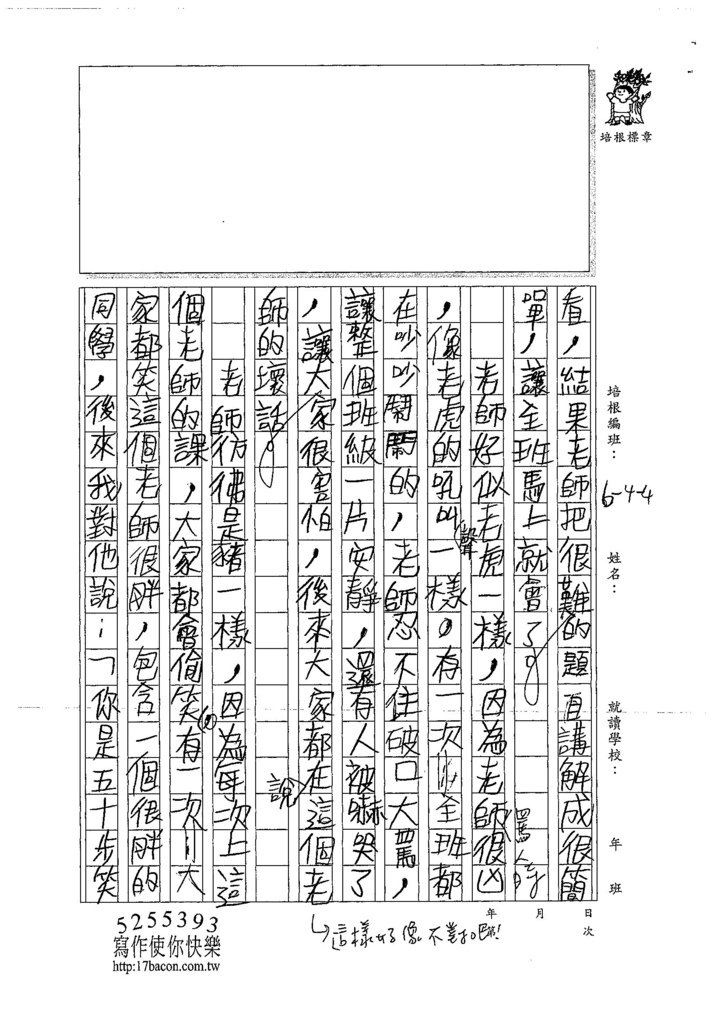 培根標章
培根編班：6-4-4 姓名： 就讀學校： 年 班
看，結果老師把很難的題目講解成很簡
單，讓全班馬上就會了。
老師好似老虎一樣，因為老師很凶
罵人時
，像老虎的吼叫聲一樣。有一次，全班都
在吵吵鬧鬧的，老師忍不住破口大罵，
讓整個班級一片安靜，還有人被嚇哭了
，讓大家很害怕，後來大家都在說這個老
師的壞話。
老師彷彿是豬一樣，因為每次上這
個老師的課，大家都會偷笑。有一次，大
家都笑這個老師很胖，包含一個很胖的
同學，後來我對他說：「你是五十步笑
年 月 日
第 次
這樣好像不對吧!
5255393
寫作使你快樂
http:17bacon.com.tw